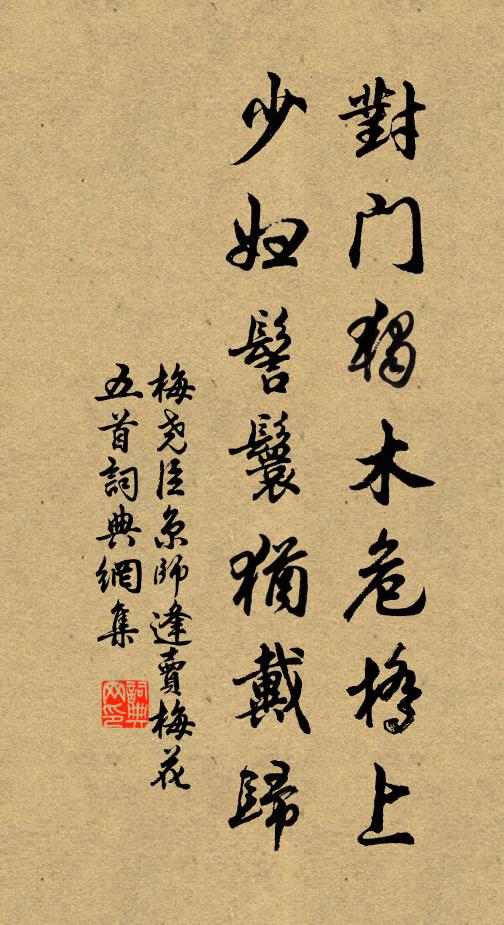 對門獨木危橋上
少婦髻鬟猶戴歸
梅堯臣京師逢賣梅花
五首詞典網集
詞典
网印